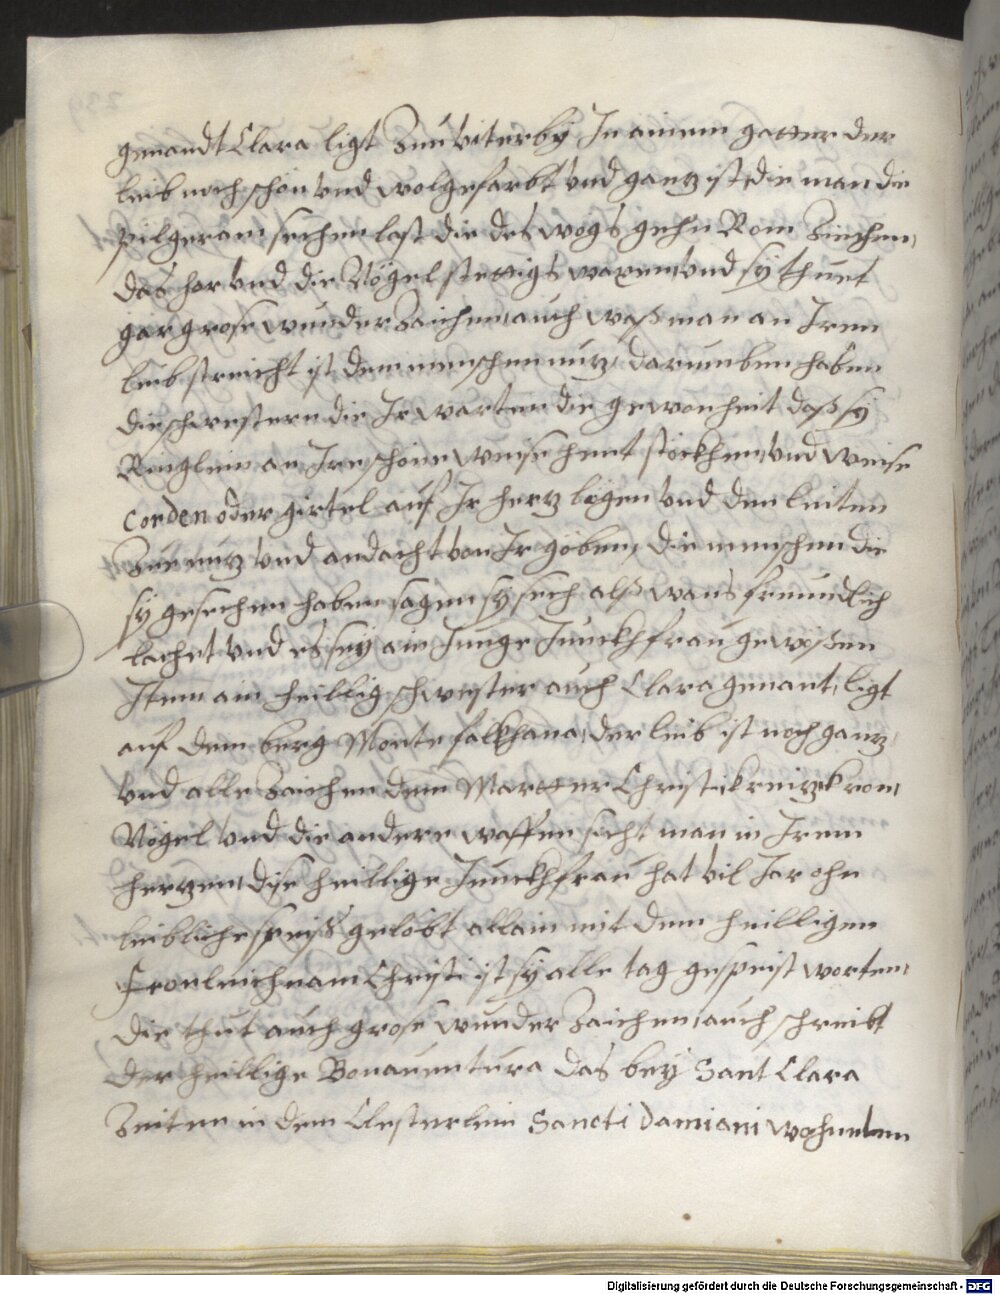 genandt Clara ligt Zuu viterby In ainem gatter der
leib noch schön vnd wolgefarbt vnd ganz ist, die man die
pilgeram sechen last die des wegs gehn Rom Ziechen,
das har vnd die Nögel stettigs waxen, vnd sy thuet
gar grose wunder Zaichen, auch waß man an Iren
leib streicht ist dem menschen nuz, darumben haben
die schwestern die Ir warten die gewonheit daß sy
Ringlein an Ire schöne weise hent stöckhen, vnd weise
Corden oder girtel auf Ir herz legen vnd den leiten
Zue nuz vnd andacht von Ir göben, die menschen die
sy gesechen haben sagen sy sech alß wans freundlich
lachet vnd es sey ain Junge Junckhfrau gewessen
Item ain heillig schwester auch Clara genant, ligt
auf dem berg Monte falkhana, der leib ist noch ganz,
vnd alle Zaichen dem Martter Christi, kreiz, kron,
Nögel vnd die andere waffen sicht man in Irem
herzen, dise heillige Junckhfrau hat vil Jar ohn
leibliche speiß gelöbt allain mit dem heilligen
Fronleichnam Christi ist sy alle tag gespeist worten,
die thut auch grose wunder Zaichen, auch schreibt
der heillige Bonauentura das bey Sant Clara
Zeiten in dem Clesterlein Sancti Damiani wohneten